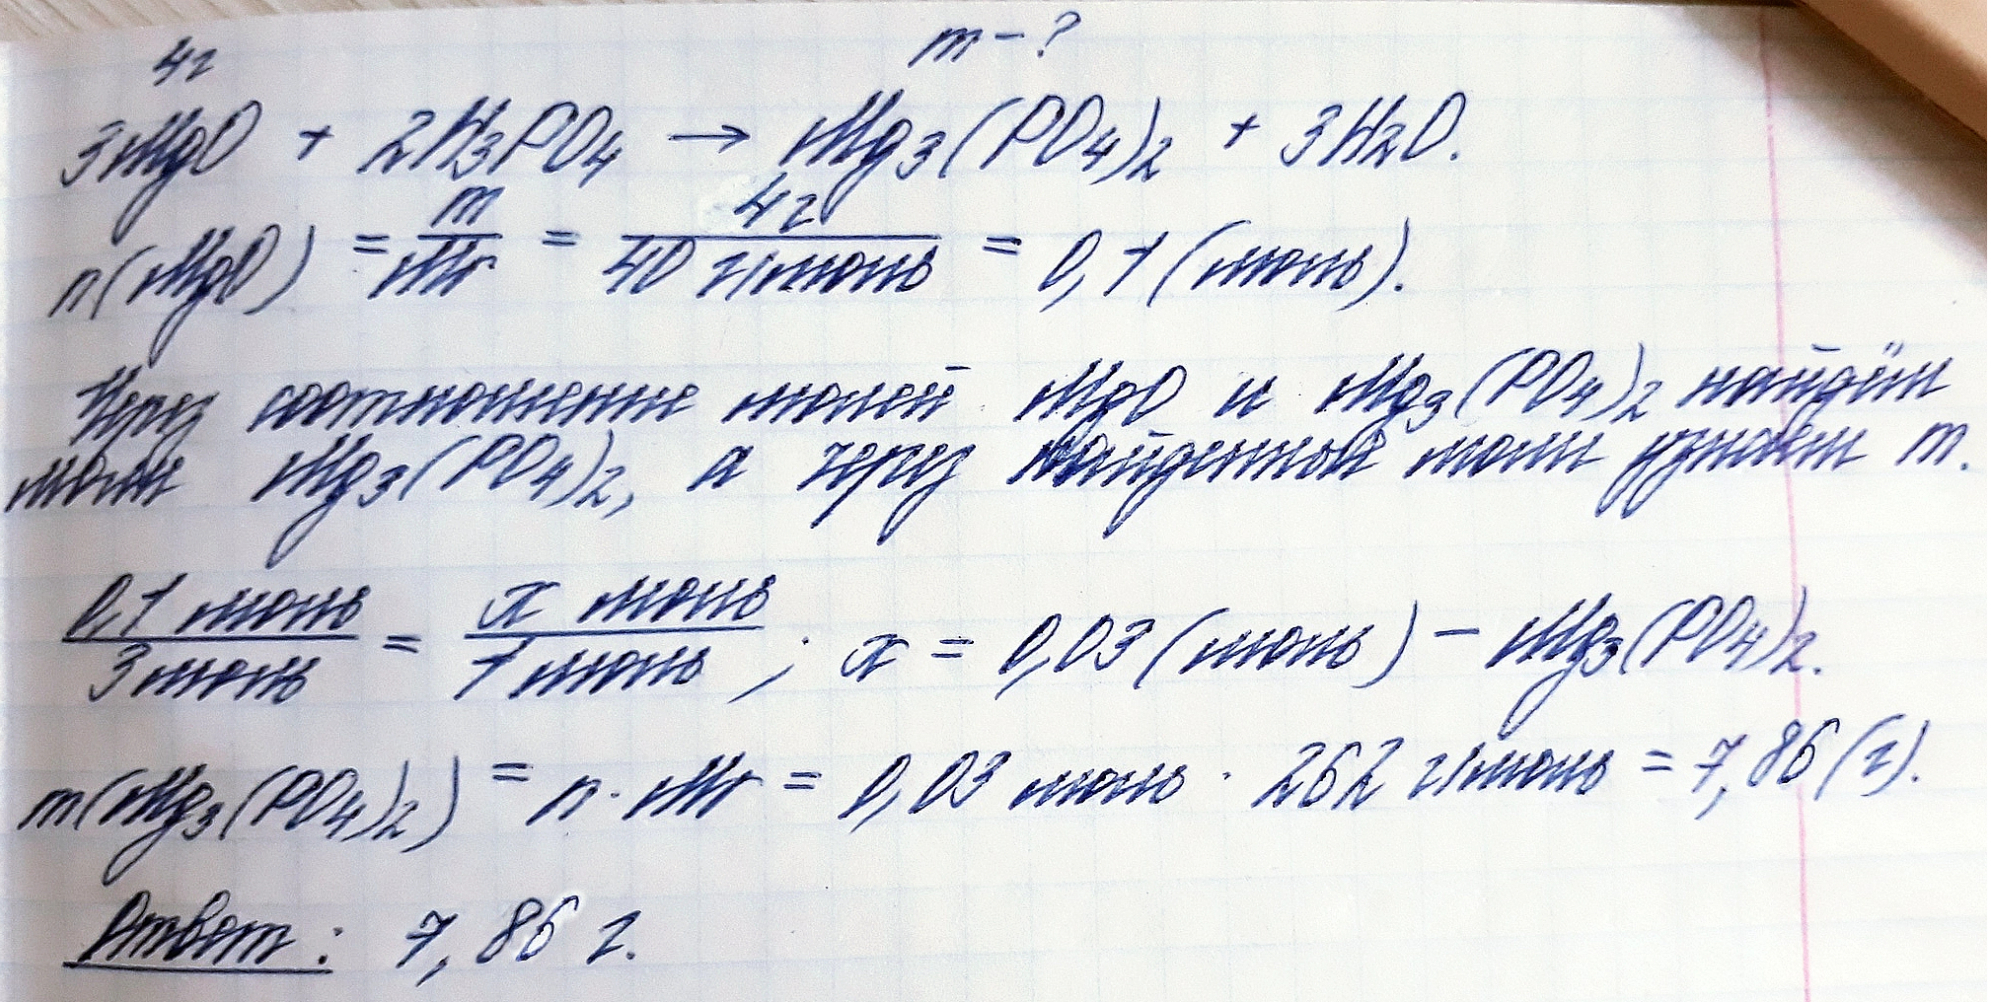 4г m - ?
3MgO + 2H₃PO₄ → Mg₃(PO₄)₂ + 3H₂O.
n(MgO) = m/Mr = 4г/40 г/моль = 0,1 (моль).
Через соотношение молей MgO и Mg₃(PO₄)₂ найдём
моли Mg₃(PO₄)₂, а через найденный моли узнаем m.
0,1 моль/3 моль = x моль/1 моль ; x = 0,03 (моль) - Mg₃(PO₄)₂.
m(Mg₃(PO₄)₂) = n · Mr = 0,03 моль · 262 г/моль = 7,86 (г).
Ответ: 7,86 г.